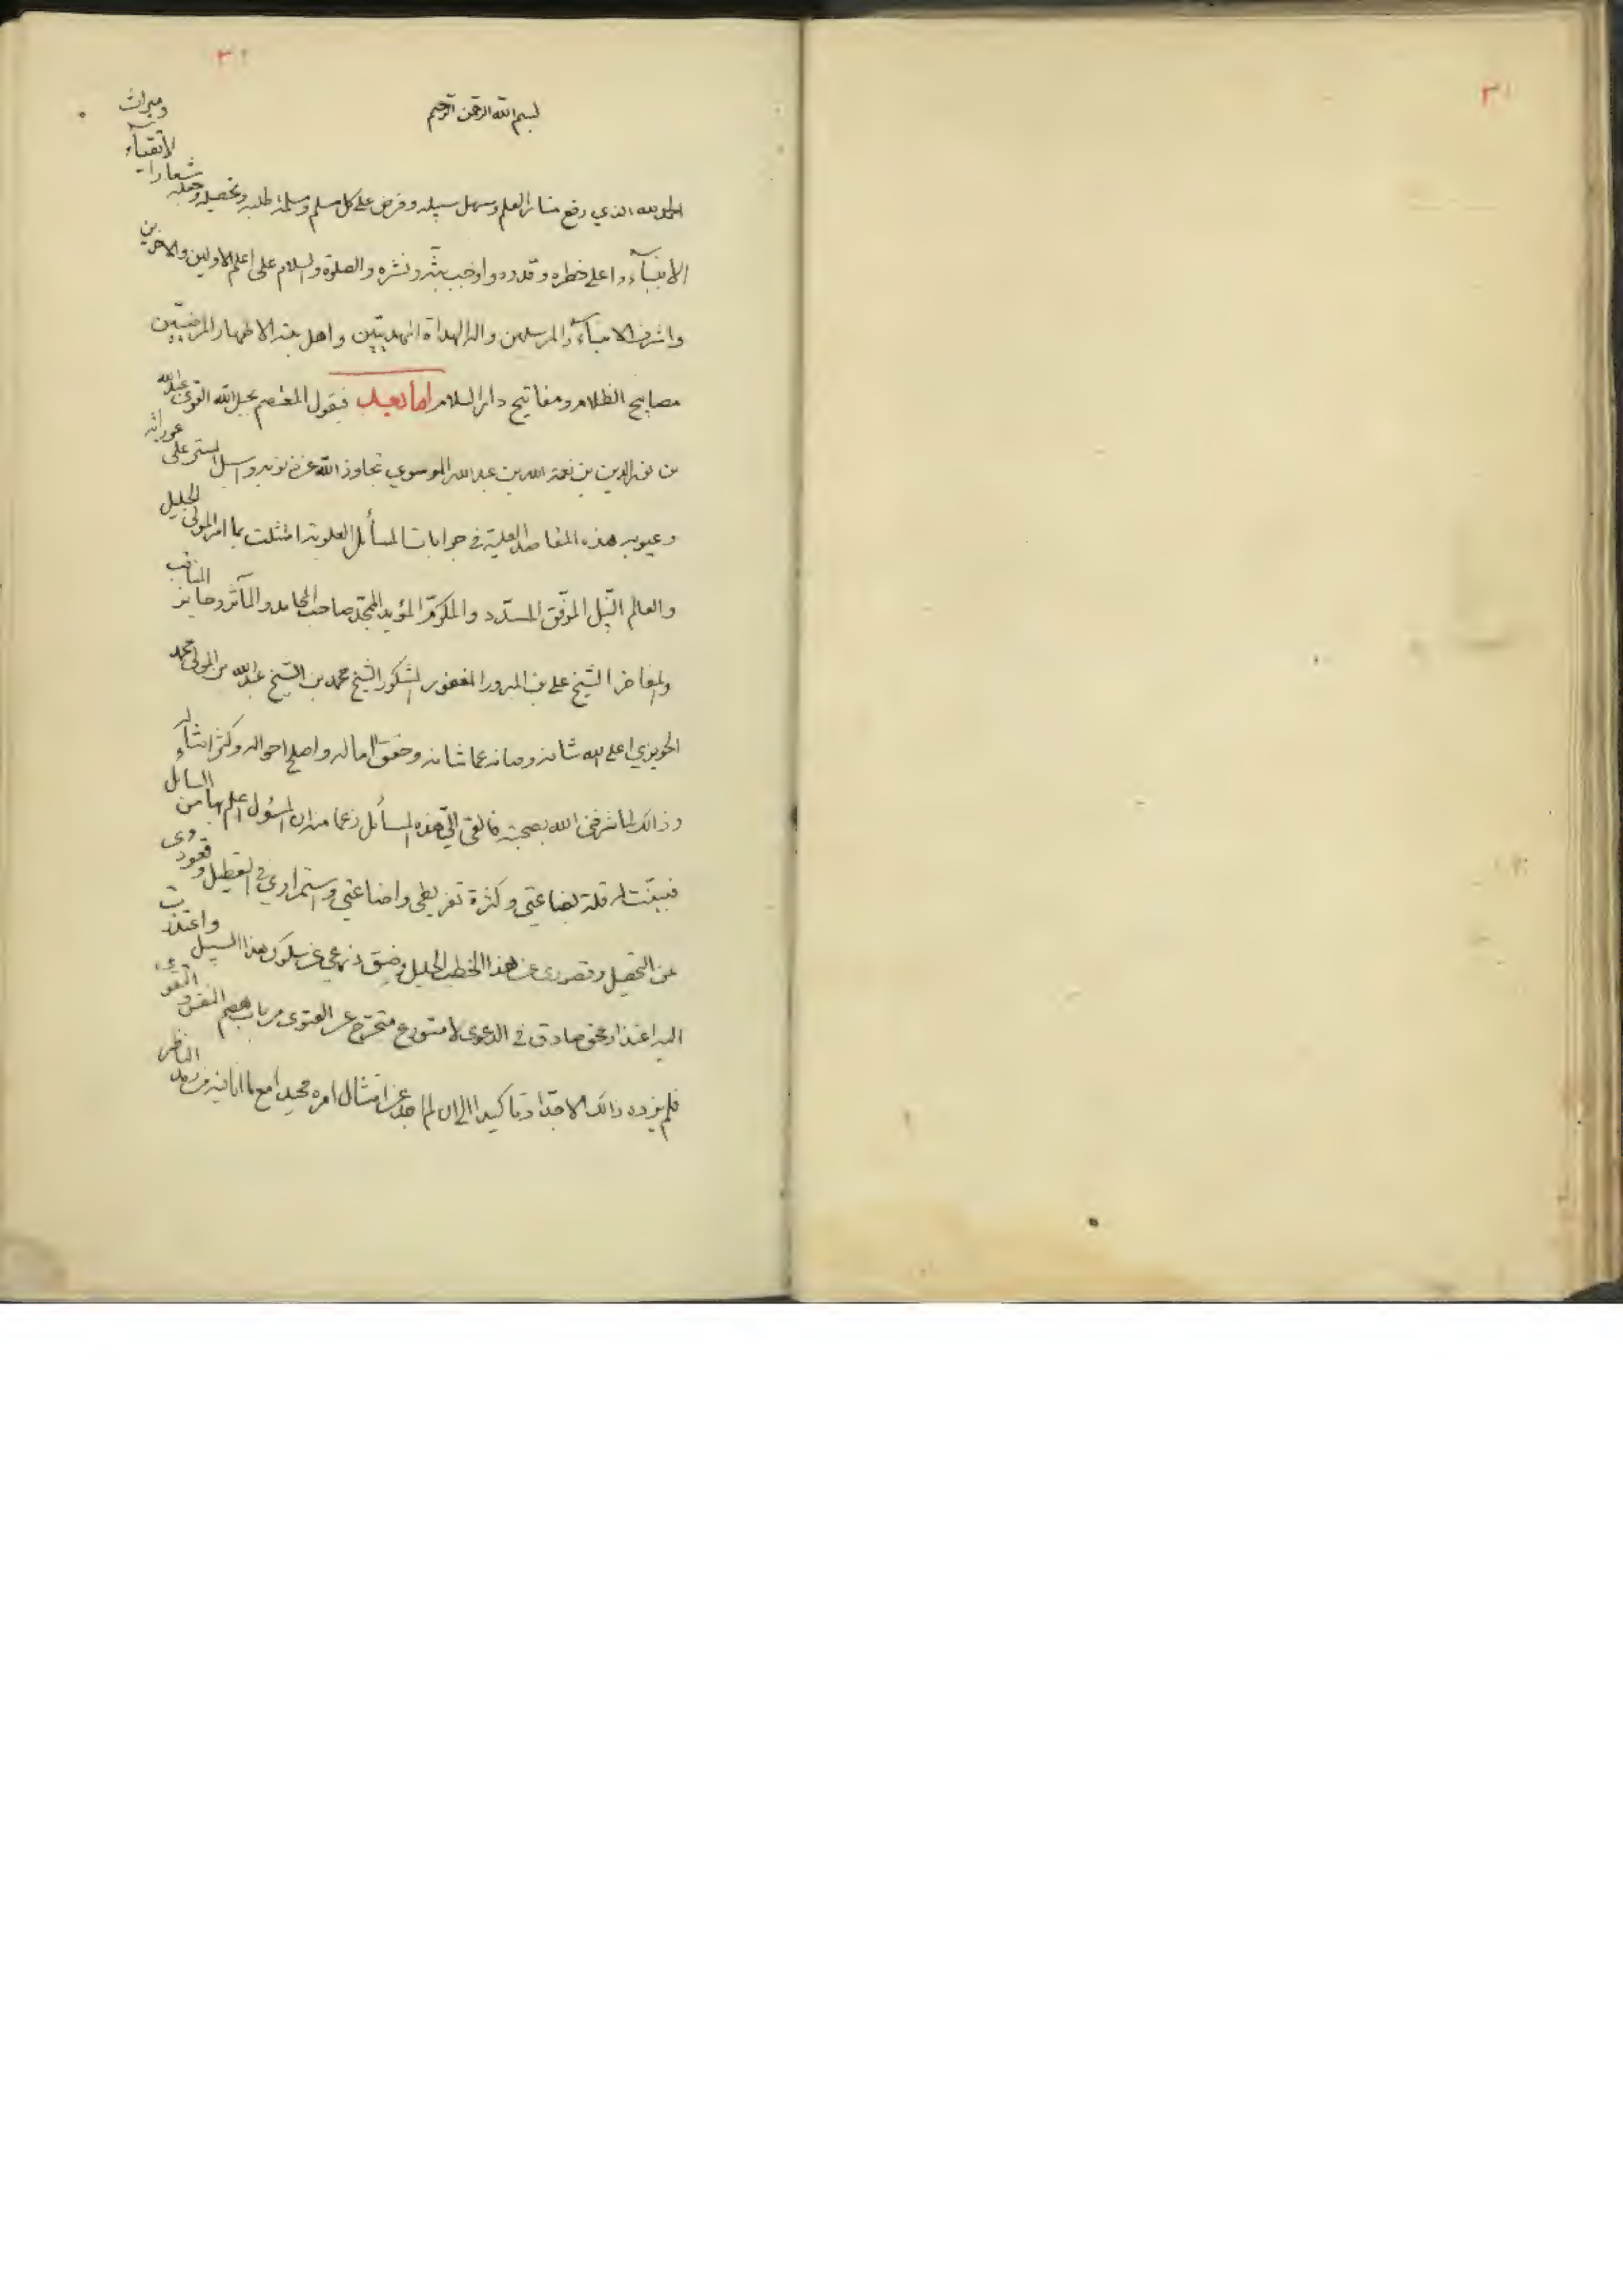 بسم الله الرحمن الرحيم
الحمد لله الذي رفع منار العلم وسهل سبيله وفرض على كل مسلم ومسلمة طلبه وتحصيله وجعله شعار الاتقياء وميراث
الانبيآء واعلى خطره وقدره واوجب بثه ونشره والصلوة والسلام على اعلم الاولين والاخرين
واشرف الانبيآء والمرسلين واله الهداة المهديّين واهل بيته الاطهار المرضيّين
مصابيح الظلام ومفاتيح دار السلام اما بعد فيقول المعتصم بحبل الله القوى عبد الله
بن نور الدين بن نعمة الله بن عبد الله الموسوي تجاوز الله عن ذنوبه واسبل الستر على عوراته
وعيوبه هذه المقاصد العلية في جوابات المسآئل العلوية امتثلت بها امر المولى الجليل
والعالم النبيل الموفّق المسدّد والمكرّم المؤيد الممجّد صاحب المحامد والمآثر وحايز المناقب
والمفاخر الشيخ علي بن المبرور المغفور المشكور الشيخ محمد بن الشيخ عبد الله بن المولى محمد
الحويزي اعلى الله شانه وصانه عما شانه وحقق اماله واصلح احواله وكثر امثاله
وذالك لما شرفني الله بصحبته فالقى اليّ هذه المسآئل زعما منه ان المسؤل اعلم بها من السائل
فبيّنت له قلة بضاعتي وكثرة تفريطى واضاعتي واستمراري في التعطيل وقعودى
عن التحصيل وقصورى عن هذا الخطب الجليل وضيق ذرعي عن سلوك هذا السبيل واعتذرت
اليه اعتذار محق صادق في الدعوى لا متورع متحرّج عن الفتوى من باب هضم النفس والتقوى
فلم يزده ذالك الا جدّا وتاكيدا الى ان لم اجد عن امتثال امره محيدا مع ما انا فيه من رمد الناظر
٣١
٣١